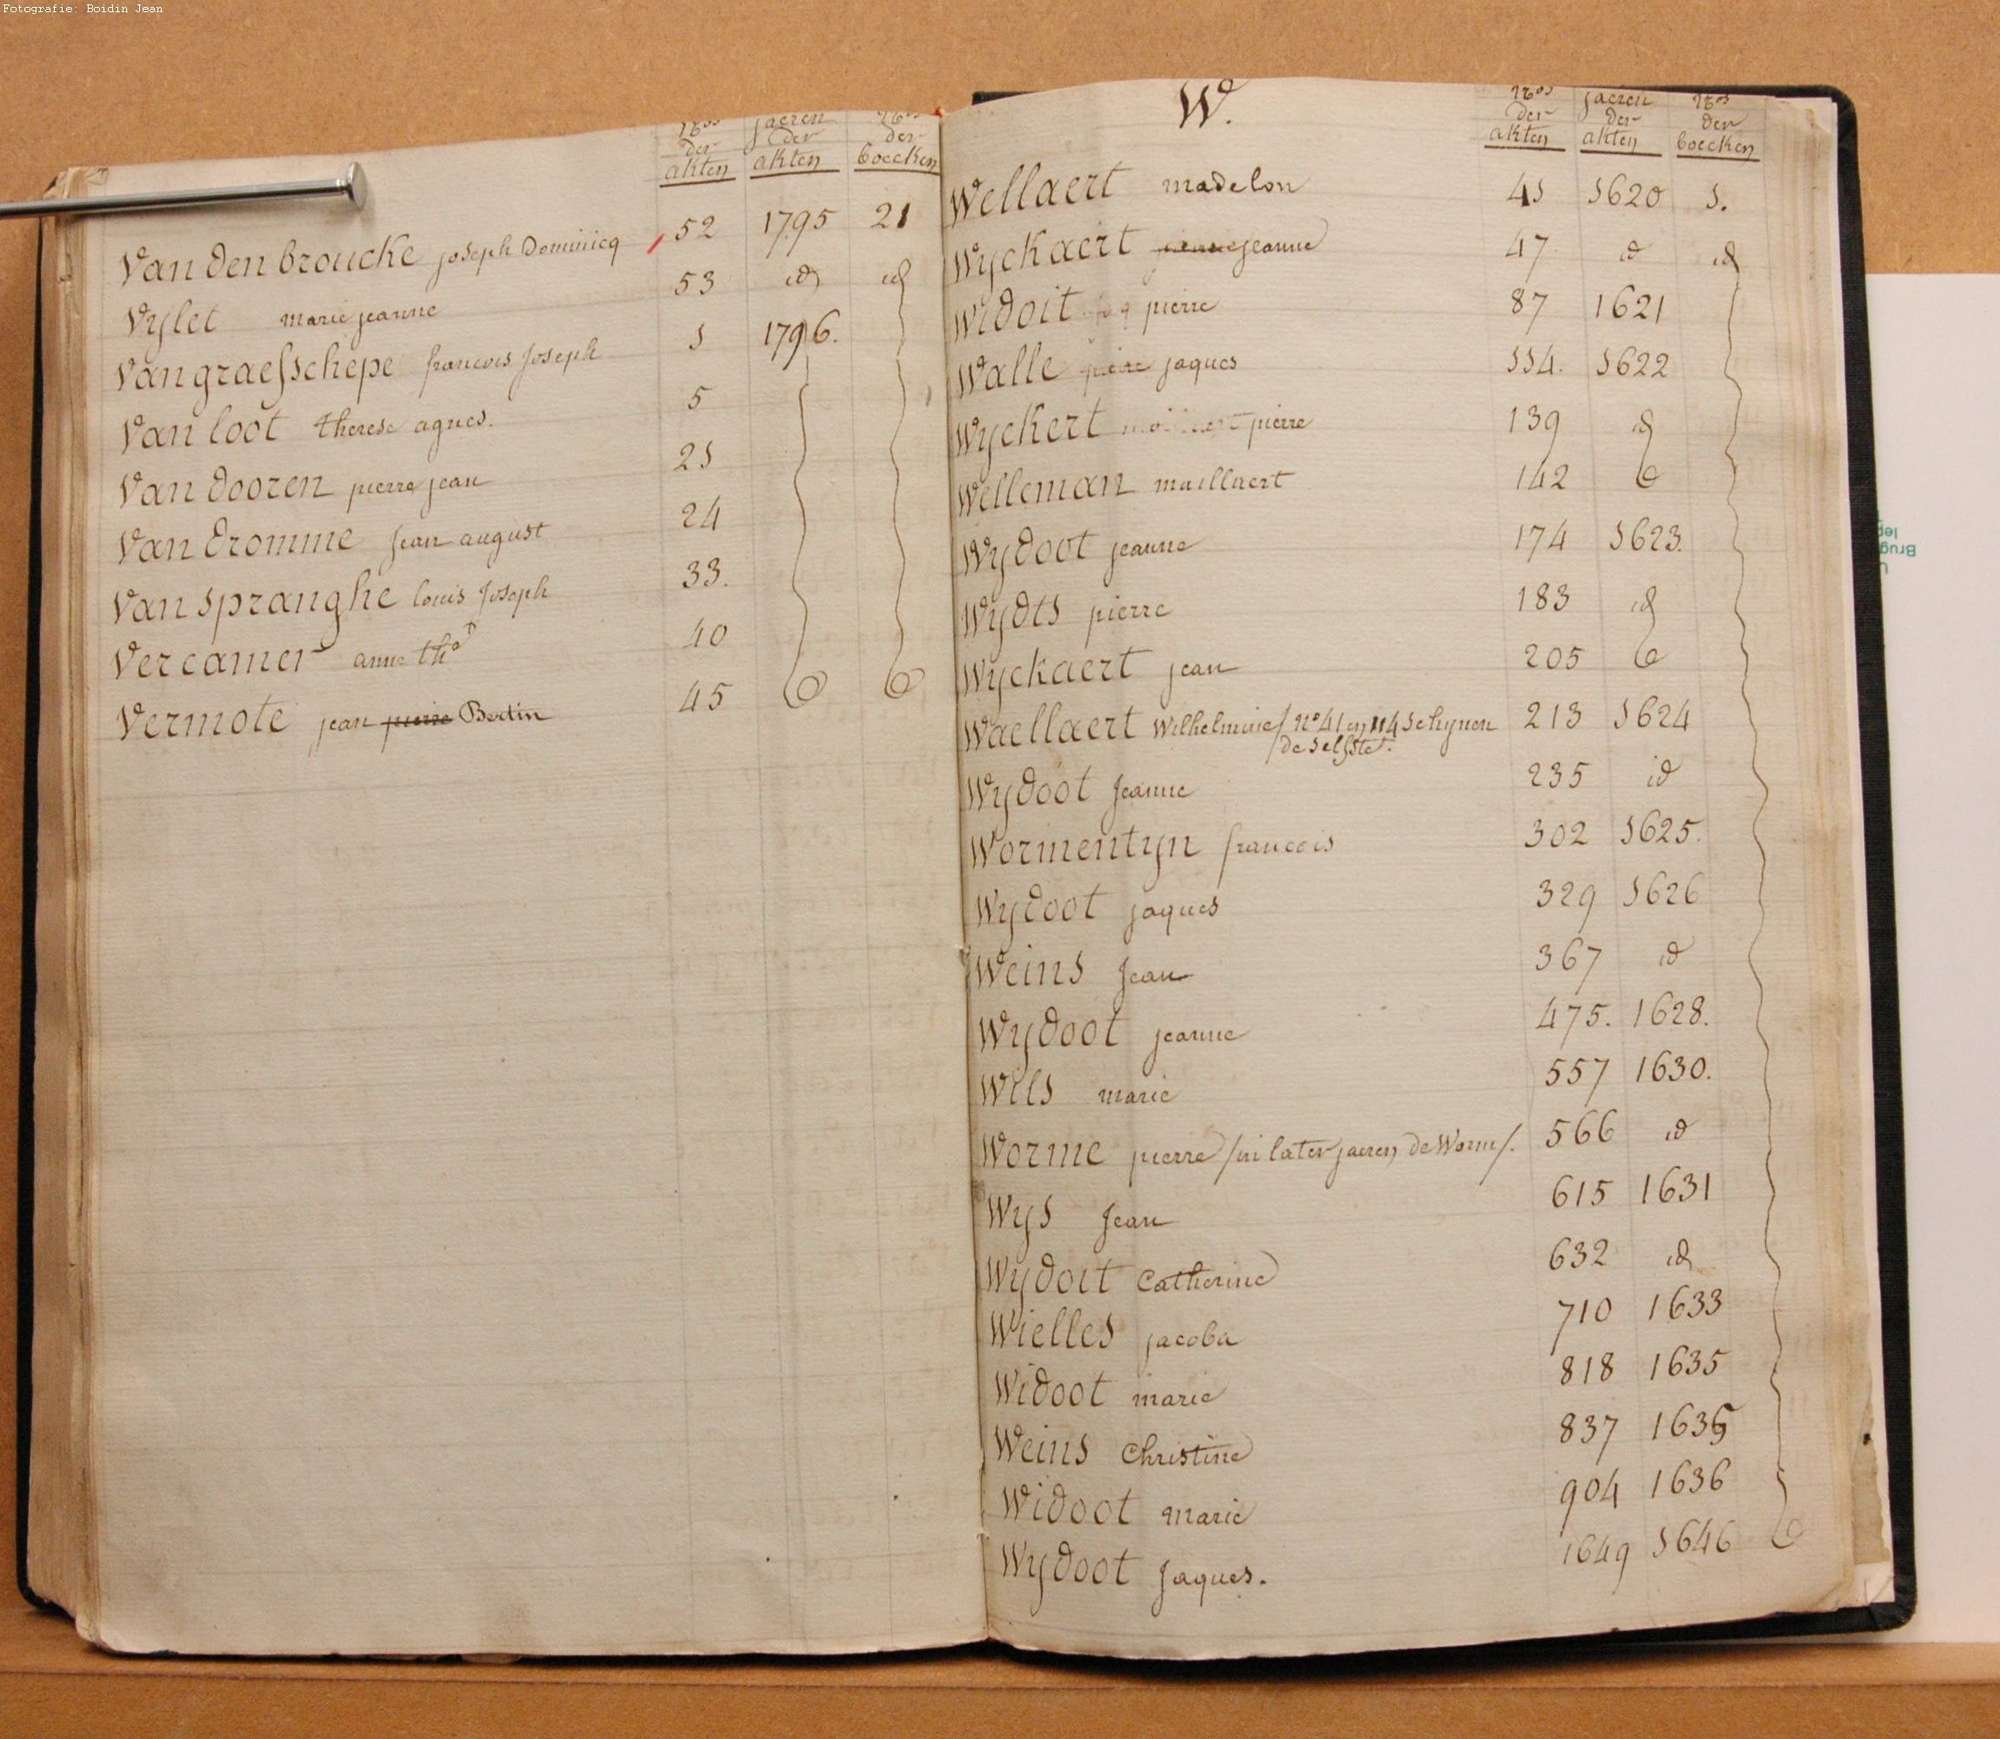 Fotografie: Boidin Jean
nos jaeren nos
der der der
akten akten boecken
Van den broucke joseph Dominicq 52 1795 21
Vylet marie jeanne 53 id id
Van graefschepe francois Joseph 1 1796.
Van loot therese agnes. 5
Van dooren pierre jean 21
Van dromme jean august 24
Van spranghe louis Joseph 33.
Vercamer anne tha 40
Vermote jean pierre Bertin 45
W.
nos jaeren nos
der der der
akten akten boecken
Wellaert madelon 41 1620 1.
Wyckaert jeanne 47 id id
Widoit pierre 87 1621
Walle pierre jaques 114. 1622
Wyckert pierre 139 id
Welleman maillaert 142
Wydoot jeanne 174 1623.
Wydts pierre 183 id
Wyckaert jean 205
Waellaert Wilhelmine / no 41 en 114 schynen 213 1624
de selfste.
Wydoot Jeanne 235 id
Wormentyn francois 302 1625.
Wydoot jaques 329 1626
Weins Jean 367 id
Wydoot jeanne 475. 1628.
Wils marie 557 1630.
Worme pierre / in later jaeren de Worm /. 566 id
Wys Jean 615 1631
Wydoit Catherine 632 id
Wielles jacoba 710 1633
Widoot marie 818 1635
Weins Christine 837 1635
Widoot marie 904 1636
Wydoot Jaques. 1649 1646
Brug